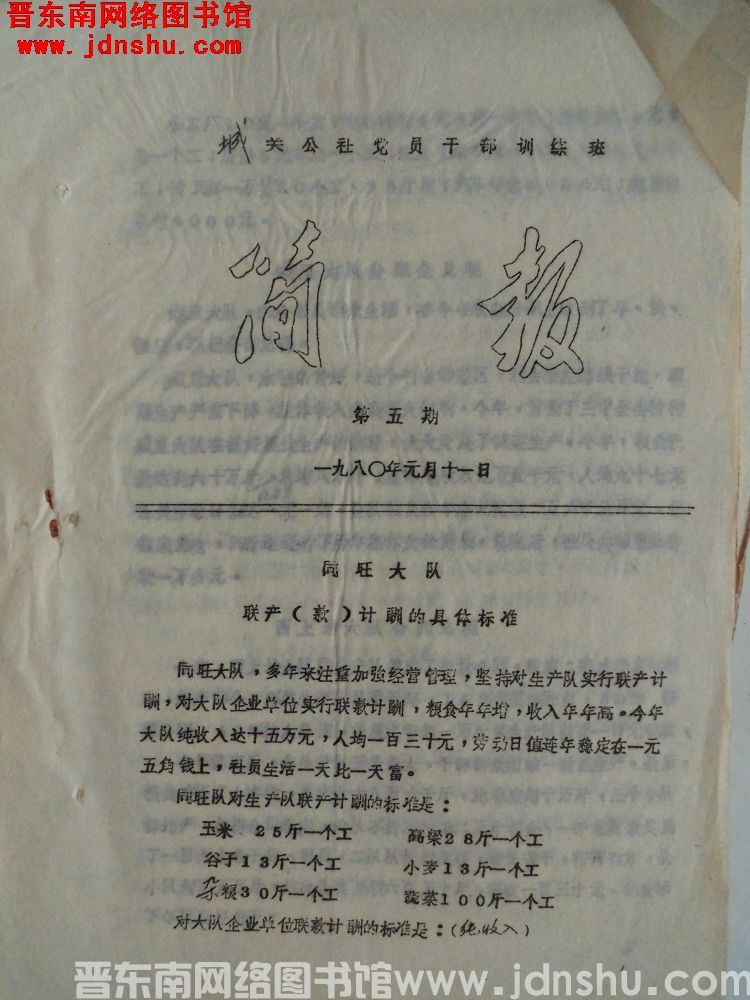 晋东南网络图书馆
www.jdnshu.com
城关公社党员干部训练班
简报
第五期
一九八〇年元月十一日
同旺大队
联产(款)计酬的具体标准
同旺大队,多年来注重加強经营管理,坚持对生产队实行联产计
酬,对大队企业单位实行联款计酬,粮食年年增,收入年年高。今年
大队纯收入达十五万元,人均一百三十元,劳动日值连年稳定在一元
五角钱上,社员生活一天比一天富。
同旺队对生产队联产计酬的标准是:
玉米 25斤一个工 高梁28斤一个工
谷子13斤一个工 小麦13斤一个工
杂粮30斤一个工 蔬菜100斤一个工
对大队企业单位联款计酬的标准是:(纯收入)
晋东南网络图书馆www.jdnshu.com